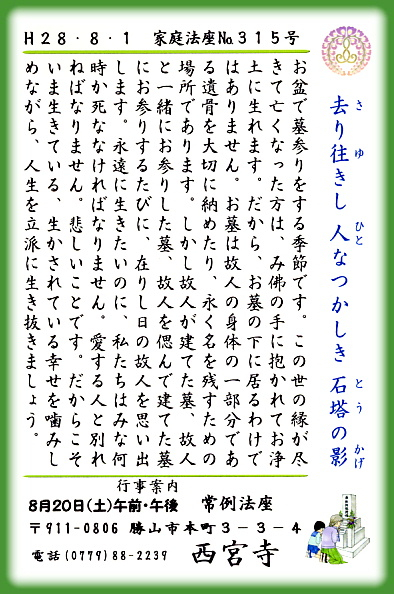 H28・8・1　家庭法座№315号
去り往きし 人なつかしき 石塔の影
さ ゆ ひと とう かげ
お盆で墓参りをする季節です。この世の縁が尽
きて亡くなった方は、み佛の手に抱かれてお浄
土に生れます。だから、お墓の下に居るわけで
はありません。お墓は故人の身体の一部分であ
る遺骨を大切に納めたり、永く名を残すための
場所であります。しかし故人が建てた墓、故人
と一緒にお参りした墓、故人を偲んで建てた墓
にお参りするたびに、在りし日の故人を思い出
します。永遠に生きたいのに、私たちはみな何
時か死ななければなりません。愛する人と別れ
ねばなりません。悲しいことです。だからこそ
いま生きている、生かされている幸せを噛みし
めながら、人生を立派に生き抜きましょう。
行事案内
8月20日(土)午前・午後　常例法座
〒911-0806 勝山市本町3－3－4
電話(0779)88-2239　西宮寺